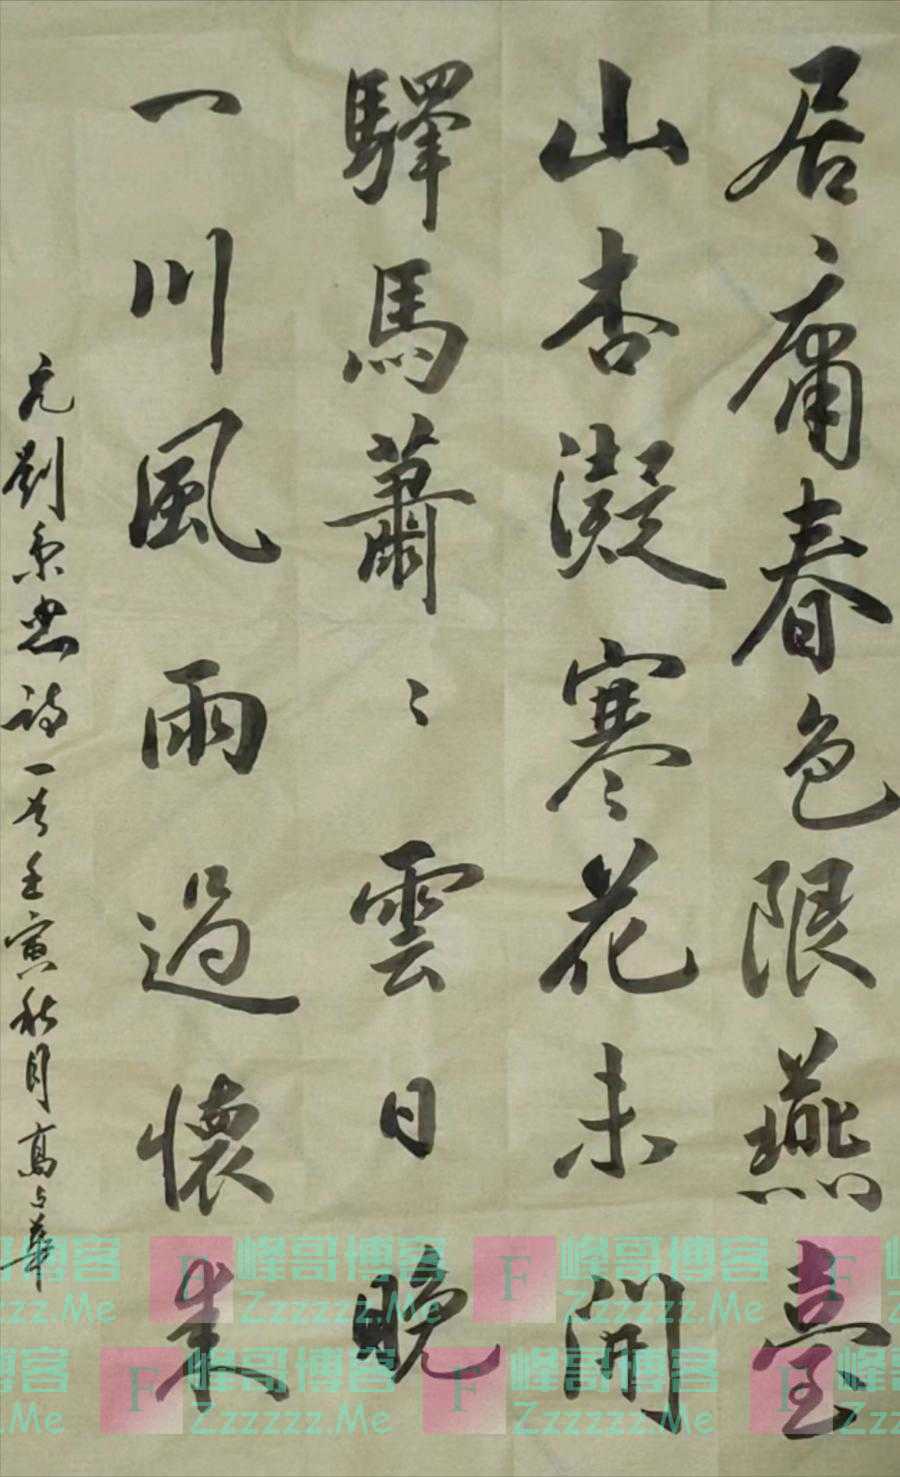 居庸春色限燕臺
山杏凝寒花未開
驛馬蕭々雲日晚
一川風雨過懷来
元劉秉忠詩一首壬寅秋月高占華
哥博客 F 峰哥博客 F 峰哥博客 F
zzz.Me Zzzzzz.Me Zzzzzz.Me
博客 F 峰哥博客 F 峰哥博客 F
z.Me Zzzzzz.Me Zzzzzz.Me